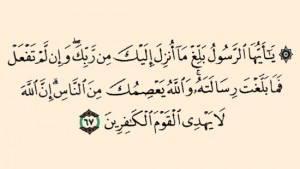 ۞ يَٰٓأَيُّهَا ٱلرَّسُولُ بَلِّغْ مَآ أُنزِلَ إِلَيْكَ مِن رَّبِّكَۖ وَإِن لَّمْ تَفْعَلْ
فَمَا بَلَّغْتَ رِسَالَتَهُۥۚ وَٱللَّهُ يَعْصِمُكَ مِنَ ٱلنَّاسِۗ إِنَّ ٱللَّهَ
لَا يَهْدِى ٱلْقَوْمَ ٱلْكَٰفِرِينَ ٦٧